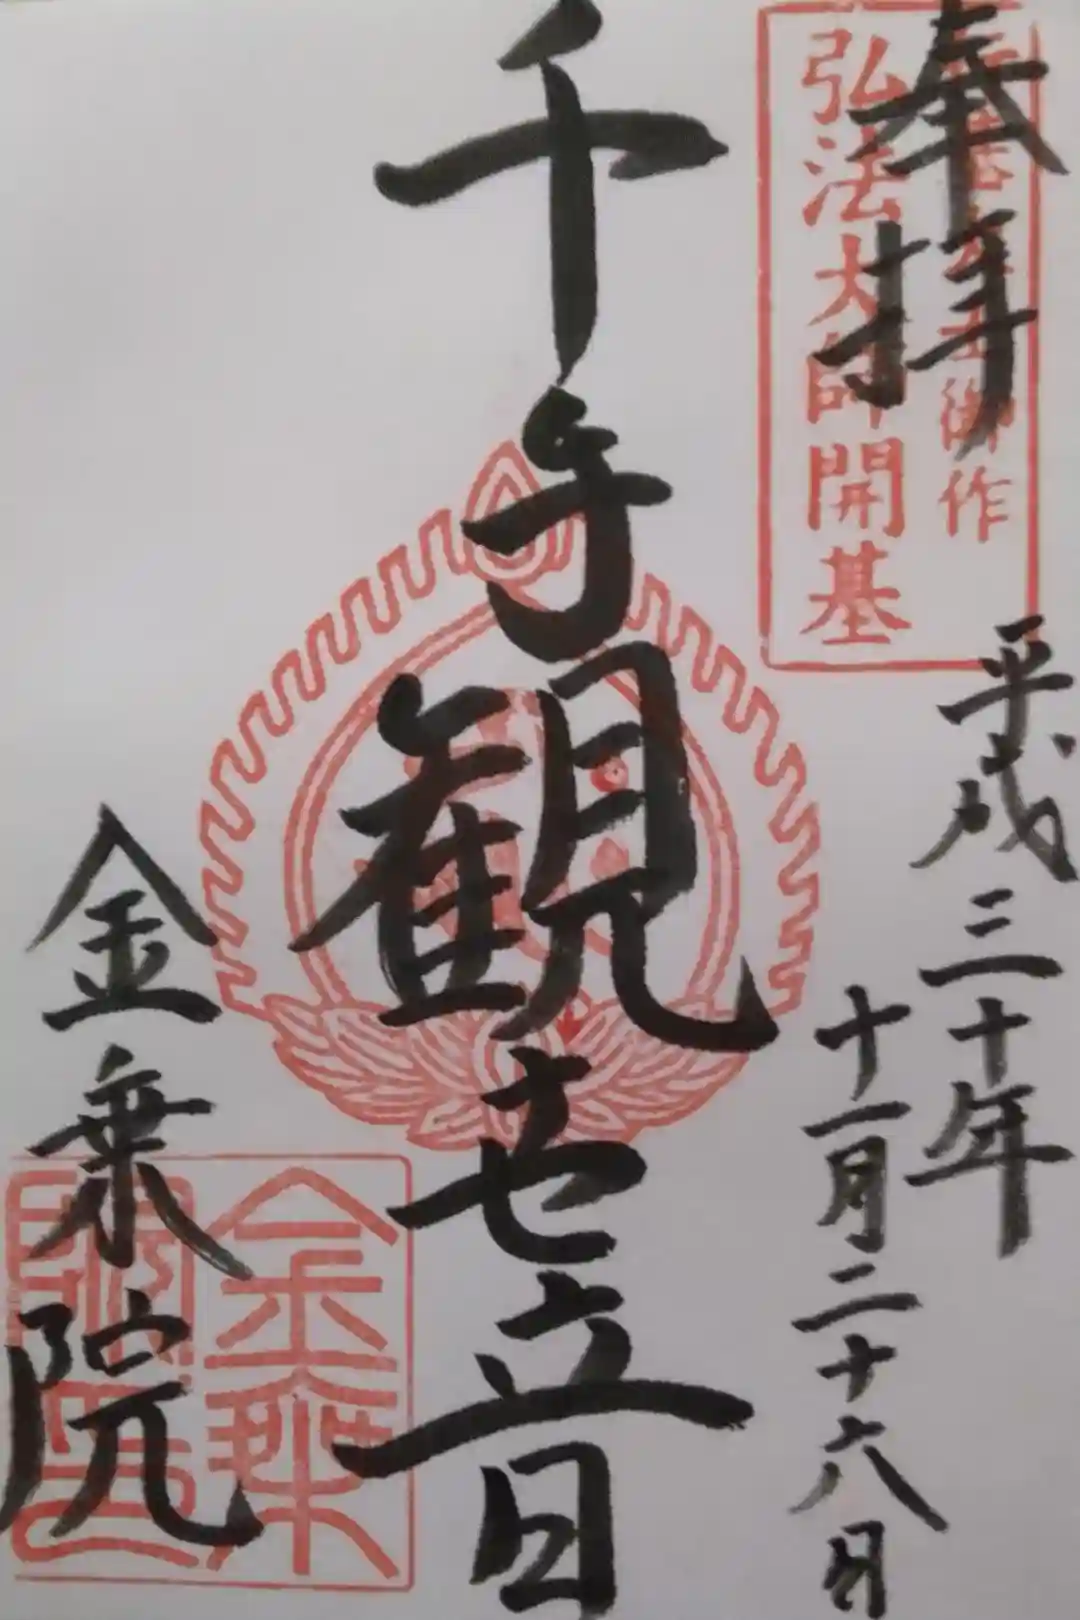 奉拝
御作
弘法大師開基
平成三十年
十一月二十六日
千手観世音
金乗院
金乗
院印